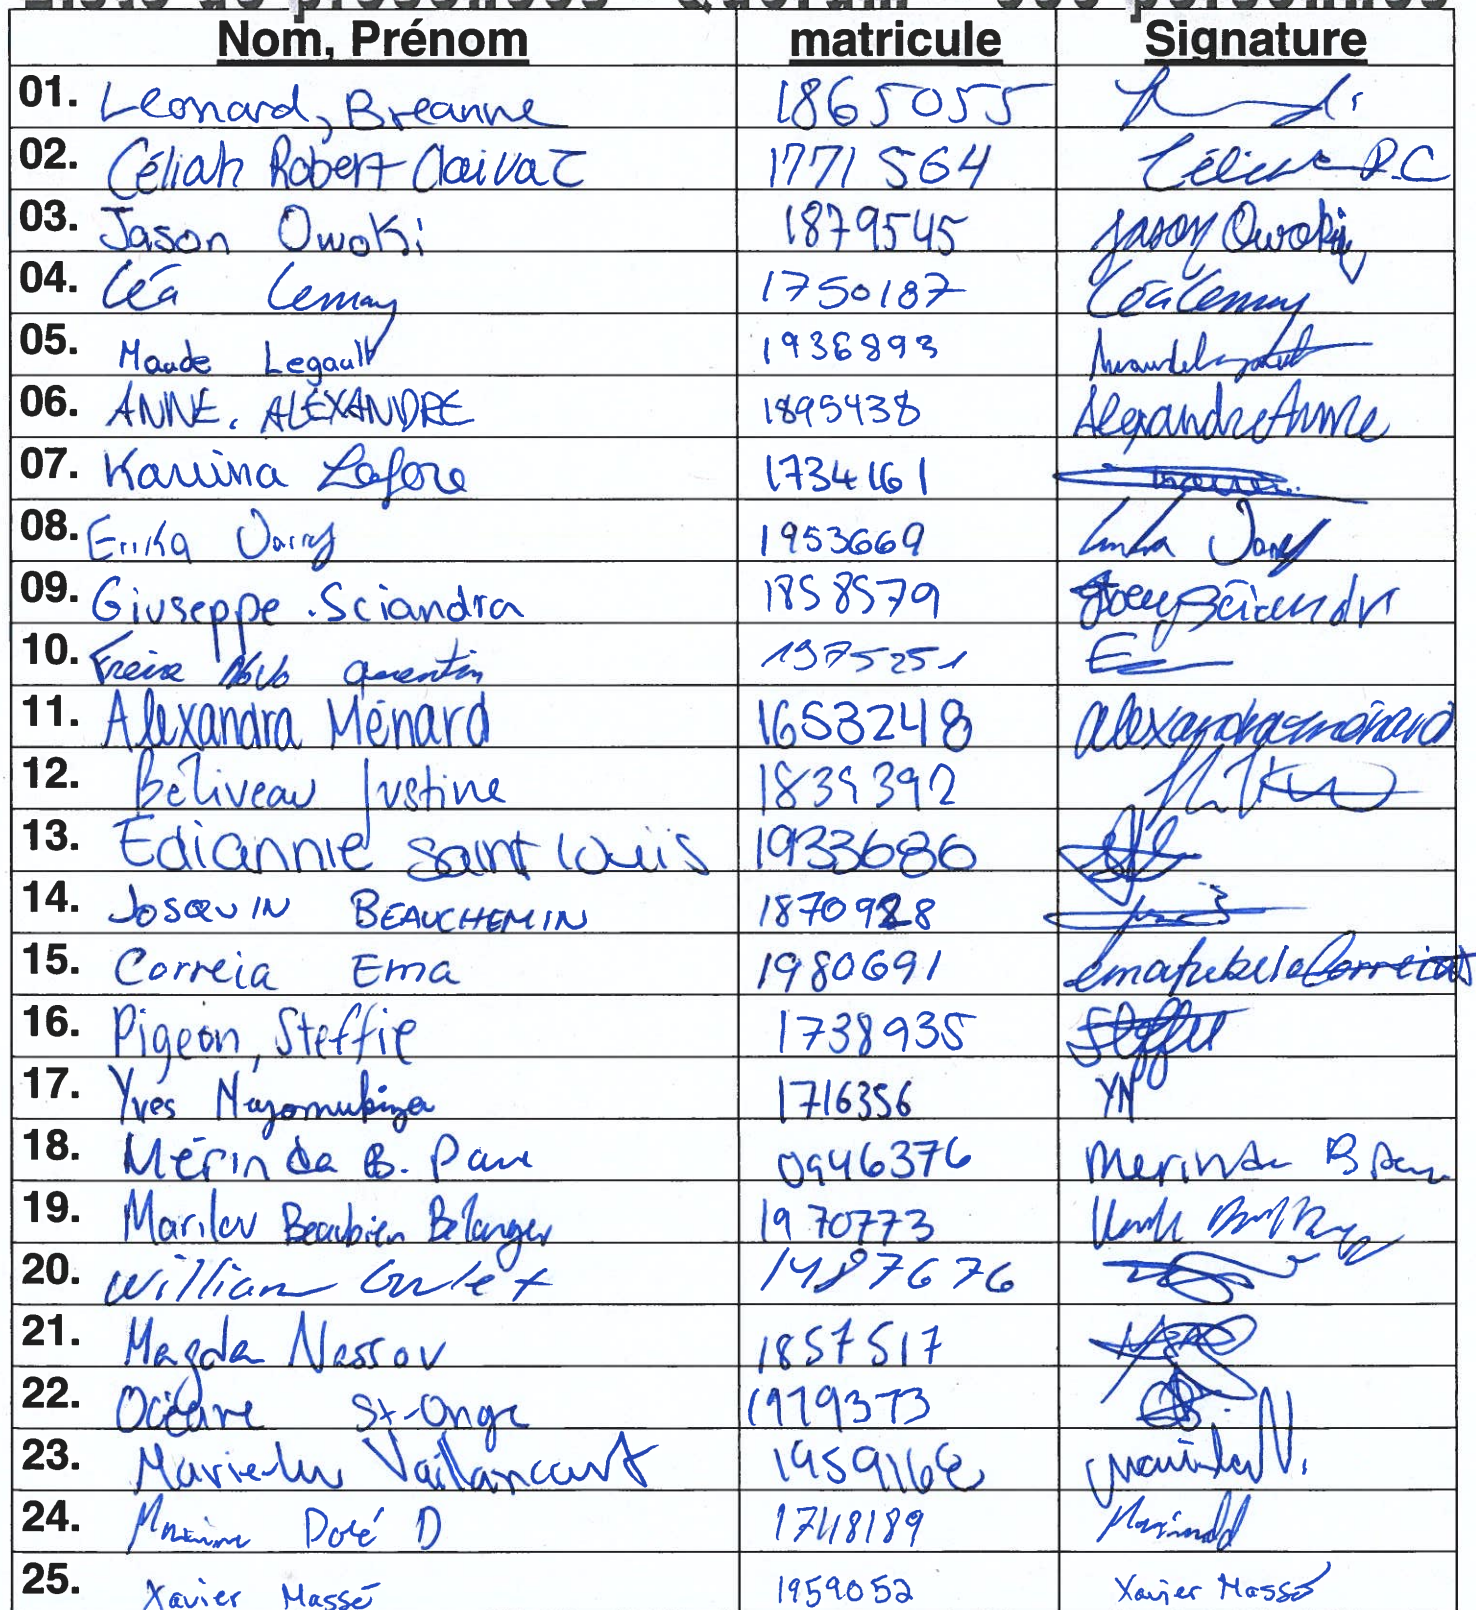 Liste de présences Quorum
Nom, Prénom matricule Signature
01. Leonard, Breanne 1865055
02. Céliah Robert Claivaz 1771564 R.C
03. Jason Owoki 1879545 Jason Owoki
04. Léa Lemay 1750187 Léa Lemay
05. Maude Legault 1936893
06. ANNE. ALEXANDRE 1895438 Alexandre Anne
07. Lafore 1734161
08. Erika 1953669
09. Giuseppe Sciandra 1858579
10. Freire Novo Quentin 1975251
11. Alexandra Ménard 1653248 alexandra ménard
12. Béliveau Justine 1839392
13. Ediannie Saint Louis 1933686
14. JOSQUIN BEAUCHEMIN 1870928
15. Correia Ema 1980691
16. Pigeon, Steffie 1738935 Steffie
17. Yves 1716356 YN
18. B. 0946376 B
19. Marilou Beaubien Bélanger 1970773
20. William Goulet 1487676
21. Magda Nassov 1857517
22. Océane St-Onge 1979373
23. Vaillancourt 1959168
24. Doré D 1748189
25. Xavier Massé 1959052 Xavier Massé